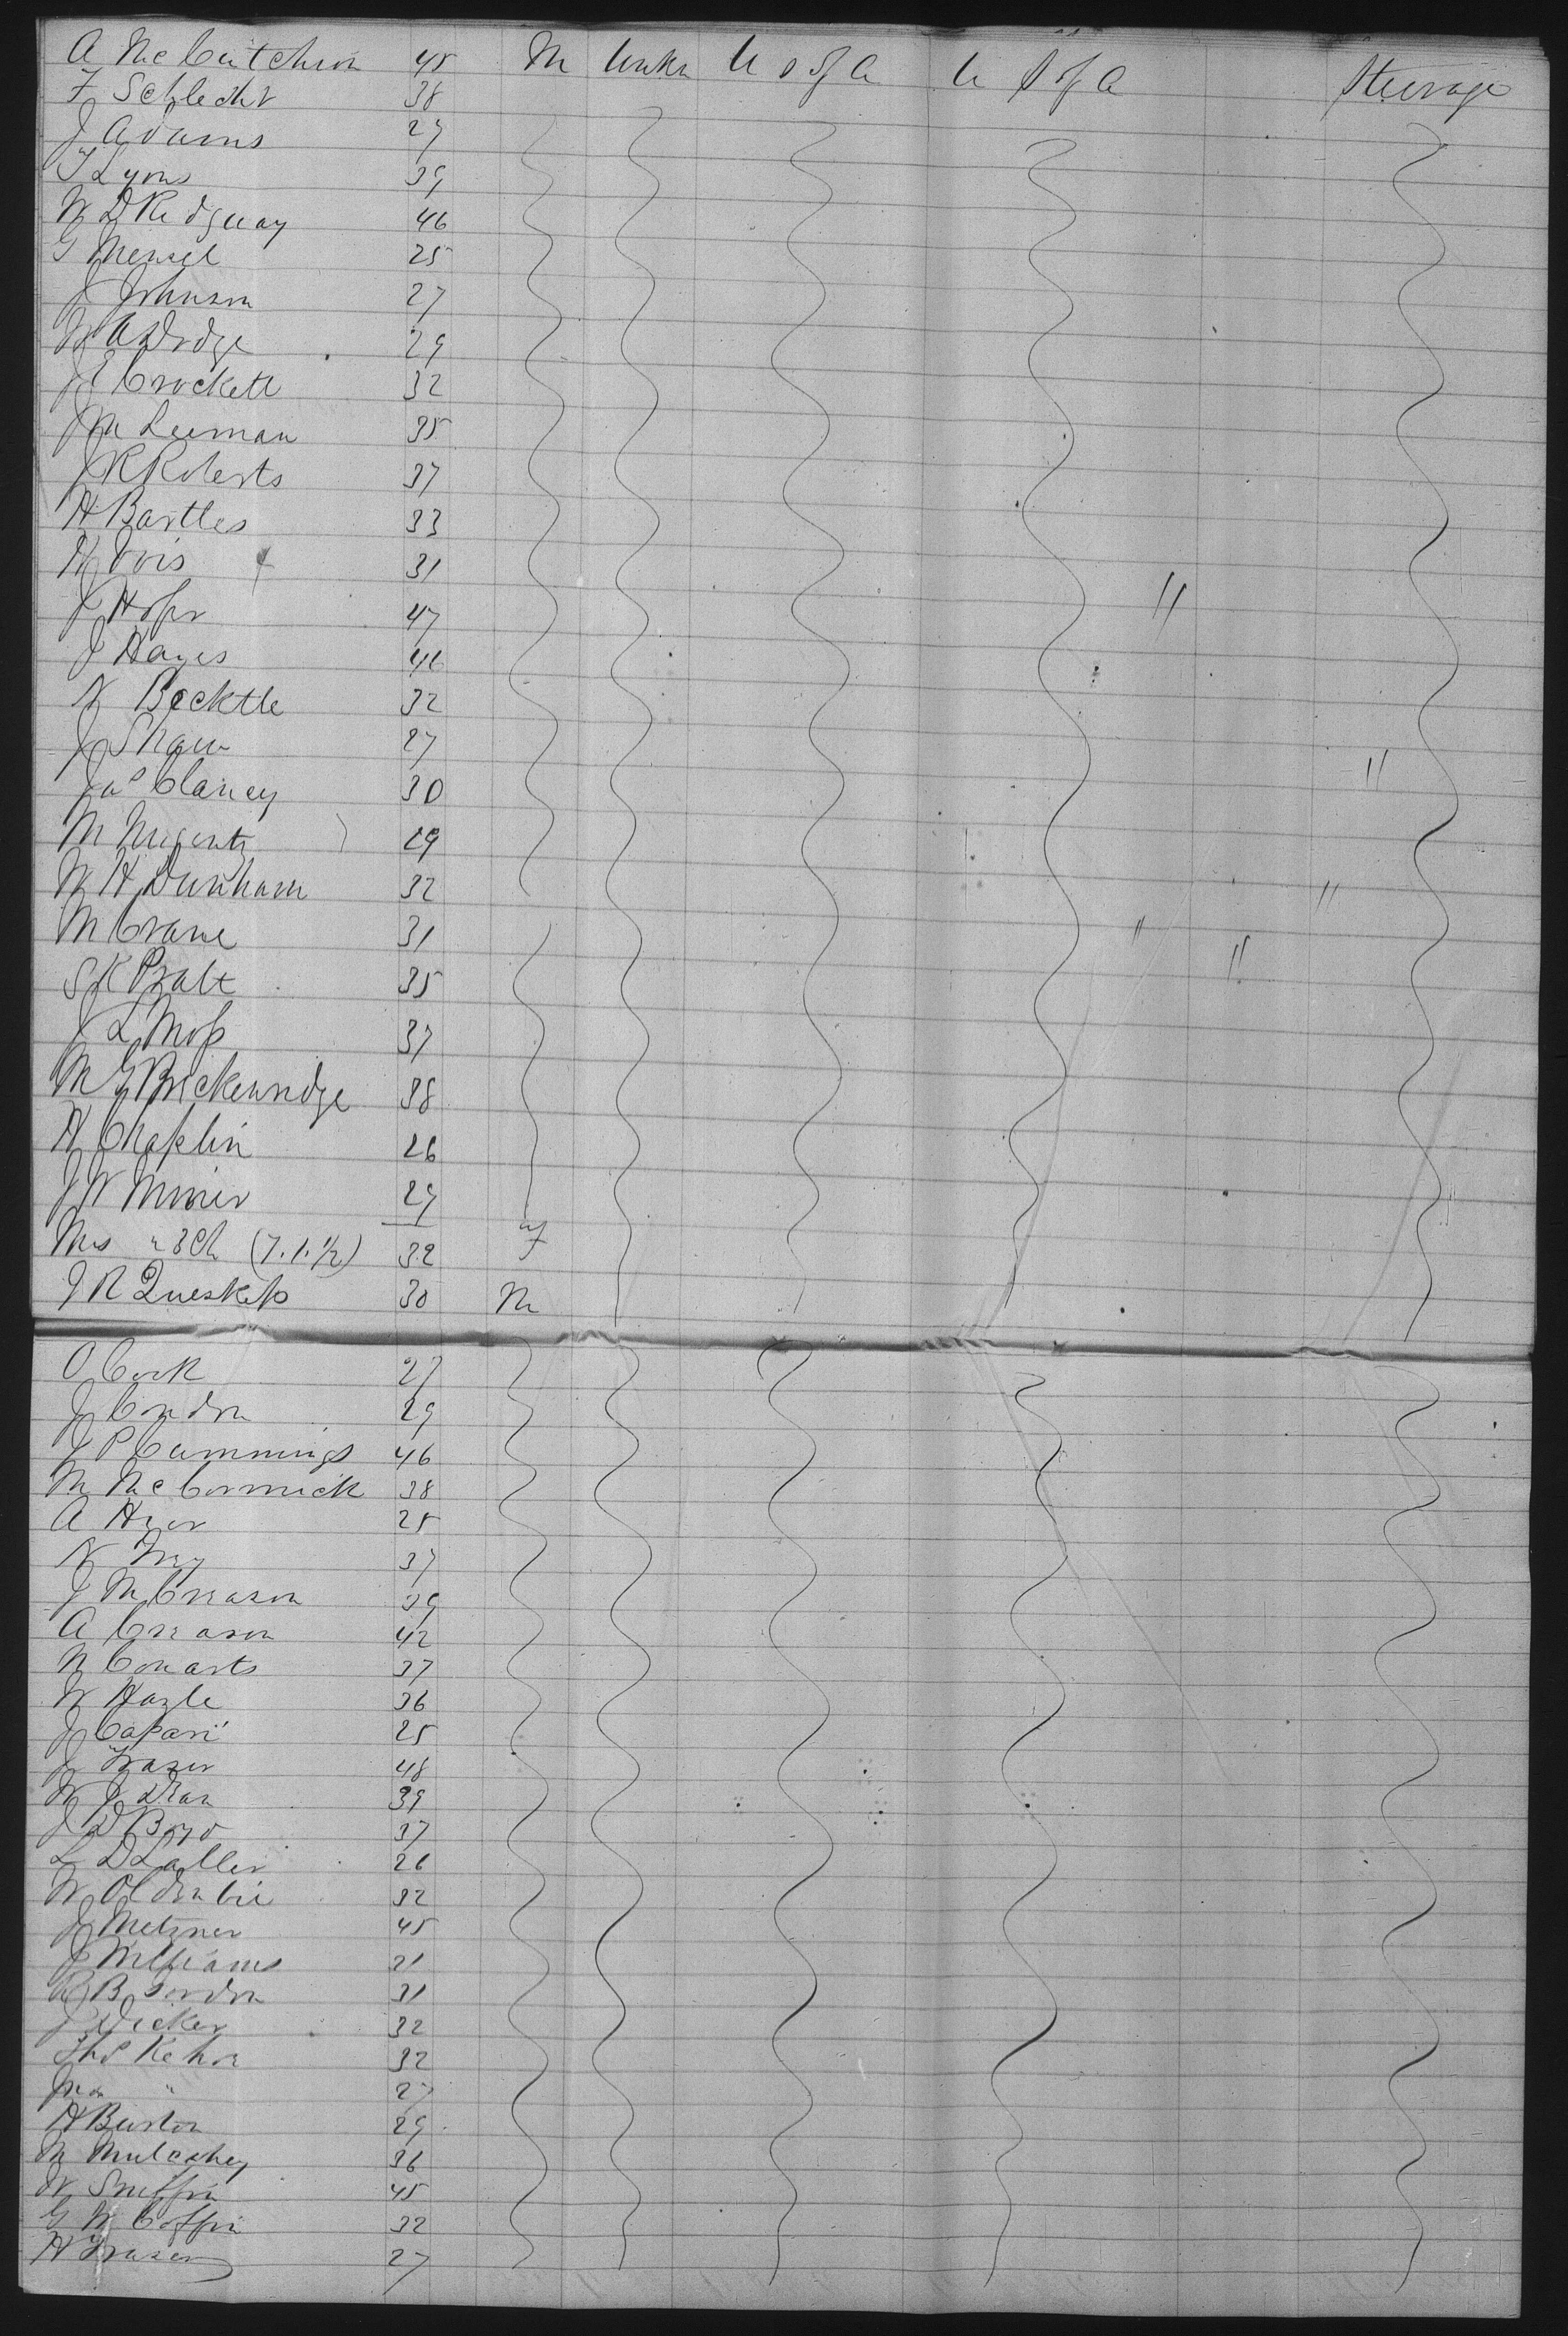 A McCutcheon 45 M Unkn U S of A U S of A Steerage
F Schlecht 38
J Adams 27
T Lyons 39
W D Ridguay 46
G Mensel 25
J Johnson 27
W A Dodge 29
J E Crockett 32
J M Leeman 35
J R Roberts 37
H Bartles 33
H Vois 31
J Hofer 47
J Hayes 46
N Becktle 32
J Shaw 27
Jas Clancy 30
M 29
W H Dunham 32
M Crane 31
S K Pratt 35
J L Moss 37
M G Brickenridge 38
H Chaplin 26
J W Minier 29
Mrs " 3 Ch (7. 1. 1/2) 32 F
J R Queskep 30 M
O Cook 27
J Condon 29
J P Cummings 46
M McCormick 38
A 25
N Frey 37
J M Creason 39
A Creason 42
N Conarts 37
W Hazle 36
J Capari 25
J Fraser 48
W J Dean 39
J D Boyd 37
L D Laller 26
W 32
J Metzner 45
J Williams 21
R B Gordon 31
J Wicker 32
Thos Kehoe 32
Jno " 27
H Burton 29
M Mulcahey 36
W Sniffin 45
G W Coffin 32
H Fraser 27